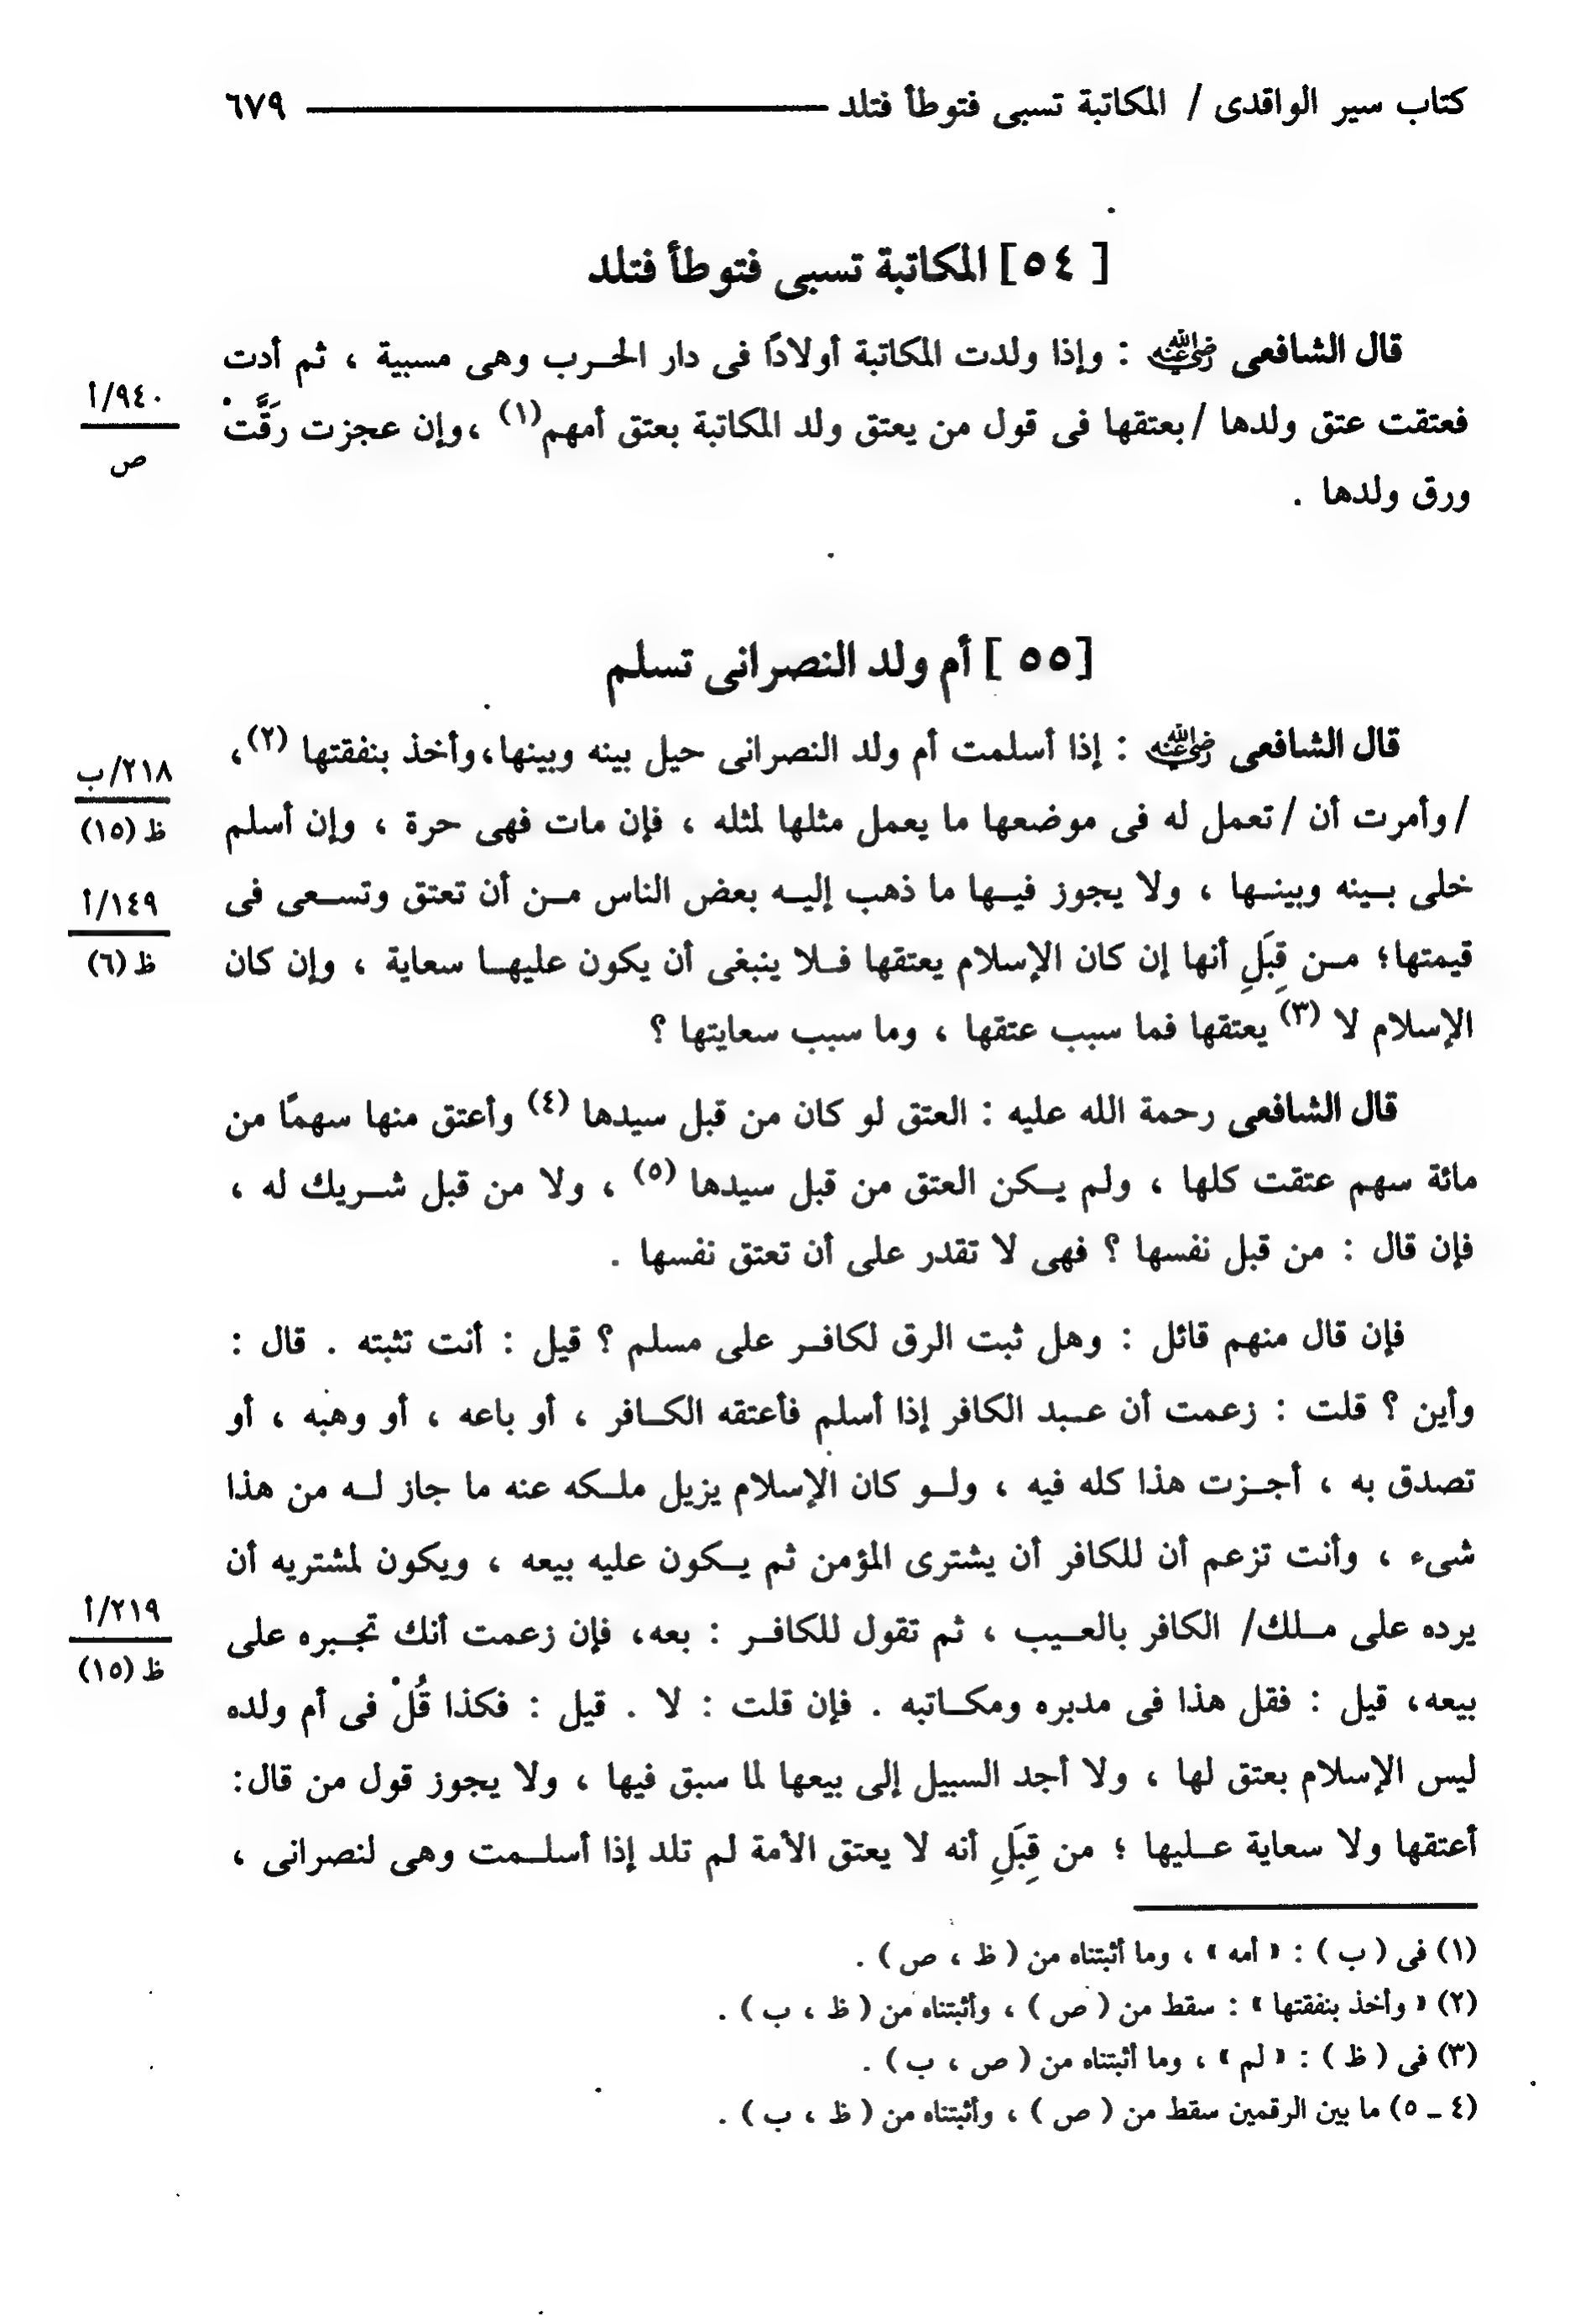 كتاب سير الواقدى / المكاتبة تسبى فتوطأ فتلد ٦٧٩
[ ٥٤] المكاتبة تسبى فتوطأ فتلد
قال الشافعى رضي الله عنه : وإذا ولدت المكاتبة أولادًا فى دار الحرب وهى مسبية ، ثم أدت
٩٤٠/أ
فعتقت عتق ولدها /بعتقها فى قول من يعتق ولد المكاتبة بعتق أمهم(١) ،وإن عجزت رَقَّتْ
ص
ورق ولدها .
[٥٥ ] أم ولد النصرانى تسلم
قال الشافعى رضي الله عنه : إذا أسلمت أم ولد النصرانى حيل بينه وبينها،وأخذ بنفقتها (٢)،
٢١٨/ب
/وأمرت أن /تعمل له فى موضعها ما يعمل مثلها لمثله ، فإن مات فهى حرة ، وإن أسلم
ظ (١٥)
خلى بينه وبينها ، ولا يجوز فيها ما ذهب إليه بعض الناس من أن تعتق وتسعى فى
١٤٩/أ
قيمتها؛ من قِبَلِ أنها إن كان الإسلام يعتقها فلا ينبغى أن يكون عليها سعاية ، وإن كان
ظ (٦)
الإسلام لا (٣) يعتقها فما سبب عتقها ، وما سبب سعايتها ؟
قال الشافعى رحمة الله عليه : العتق لو كان من قبل سيدها (٤) وأعتق منها سهمًا من
مائة سهم عتقت كلها ، ولم يكن العتق من قبل سيدها (٥) ، ولا من قبل شريك له ،
فإن قال : من قبل نفسها ؟ فهى لا تقدر على أن تعتق نفسها .
فإن قال منهم قائل : وهل ثبت الرق لكافر على مسلم ؟ قيل : أنت تثبته . قال :
وأين ؟ قلت : زعمت أن عبد الكافر إذا أسلم فأعتقه الكافر ، أو باعه ، أو وهبه ، أو
تصدق به ، أجزت هذا كله فيه ، ولو كان الإسلام يزيل ملكه عنه ما جاز له من هذا
شىء ، وأنت تزعم أن للكافر أن يشترى المؤمن ثم يكون عليه بيعه ، ويكون لمشتريه أن
٢١٩/أ
يرده على ملك/ الكافر بالعيب ، ثم تقول للكافر : بعه، فإن زعمت أنك تجبره على
ظ (١٥)
بيعه، قيل : فقل هذا فى مدبره ومكاتبه . فإن قلت : لا . قيل : فكذا قُلْ فى أم ولده
ليس الإسلام بعتق لها ، ولا أجد السبيل إلى بيعها لما سبق فيها ، ولا يجوز قول من قال:
أعتقها ولا سعاية عليها ؛ من قِبَلِ أنه لا يعتق الأمة لم تلد إذا أسلمت وهى لنصرانى ،
(١) فى ( ب ) : « أمه » ، وما أثبتناه من ( ظ ، ص ) .
(٢) « وأخذ بنفقتها » : سقط من ( ص ) ، وأثبتناه من ( ظ ، ب ) .
(٣) فى ( ظ ) : « لم » ، وما أثبتناه من ( ص ، ب ) .
(٤ ـ ٥) ما بين الرقمين سقط من ( ص ) ، وأثبتناه من ( ظ ، ب ) .